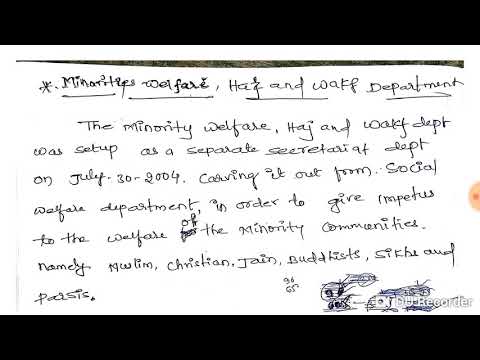 *. Minorities welfare, Haj and Wakf Department
The Minority welfare, Haj and Wakf dept
was setup as a separate secretariat dept
on July-30-2004. Carving it out from Social
welfare department, in order to give impetus
to the welfare of the Minority Communities.
Namely Muslim, Christian, Jain, Buddhists, Sikhs and
Parsis.
DU Recorder